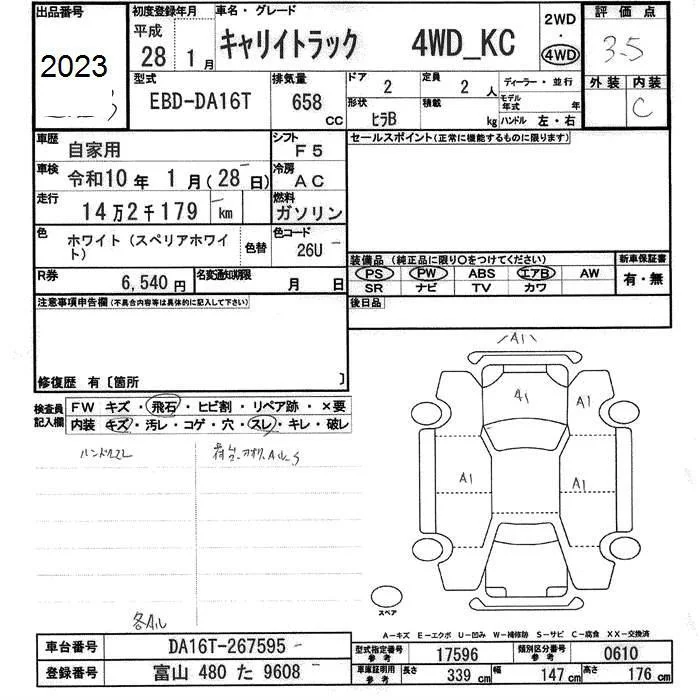 出品番号 初度登録年月 車名・グレード 評価点
2023 平成 28年 1月 キャリイトラック 4WD_KC 2WD・4WD 3.5
外装 内装 C
型式 排気量 ドア 定員 ディーラー・並行
EBD-DA16T 658 cc 2 2人 モデル年式 年
形状 積載 ハンドル 左・右
ヒラB kg
車歴 自家用 シフト F5 セールスポイント(正常に機能するものに限ります)
車検 令和10年 1月(28日) 冷房 AC
走行 14万2千179 km 燃料 ガソリン
色 ホワイト(スペリアホワイト) 色替 色コード 26U
R券 6,540円 名変通知期限 月 日
装備品(純正品に限り○をつけてください) 新車保証書
PS PW ABS エアB AW 有・無
SR ナビ TV カワ
後日品
注意事項申告欄(不具合内容等は具体的に記入して下さい)
修復歴 有〔箇所 〕
検査員記入欄 FW キズ・飛石・ヒビ割・リペア跡・×要
内装 キズ・汚レ・コゲ・穴・スレ・キレ・破レ
ハンドルスレ
各Aル
A1
A1
A1
A1
A1
A1
スペア
A-キズ E-エクボ U-凹み W-補修跡 S-サビ C-腐食 XX-交換済
車台番号 DA16T-267595 型式指定番号 参考 17596 類別区分番号 参考 0610
登録番号 富山 480 た 9608 車庫証明用 参考 長さ 339 cm 幅 147 cm 高さ 176 cm